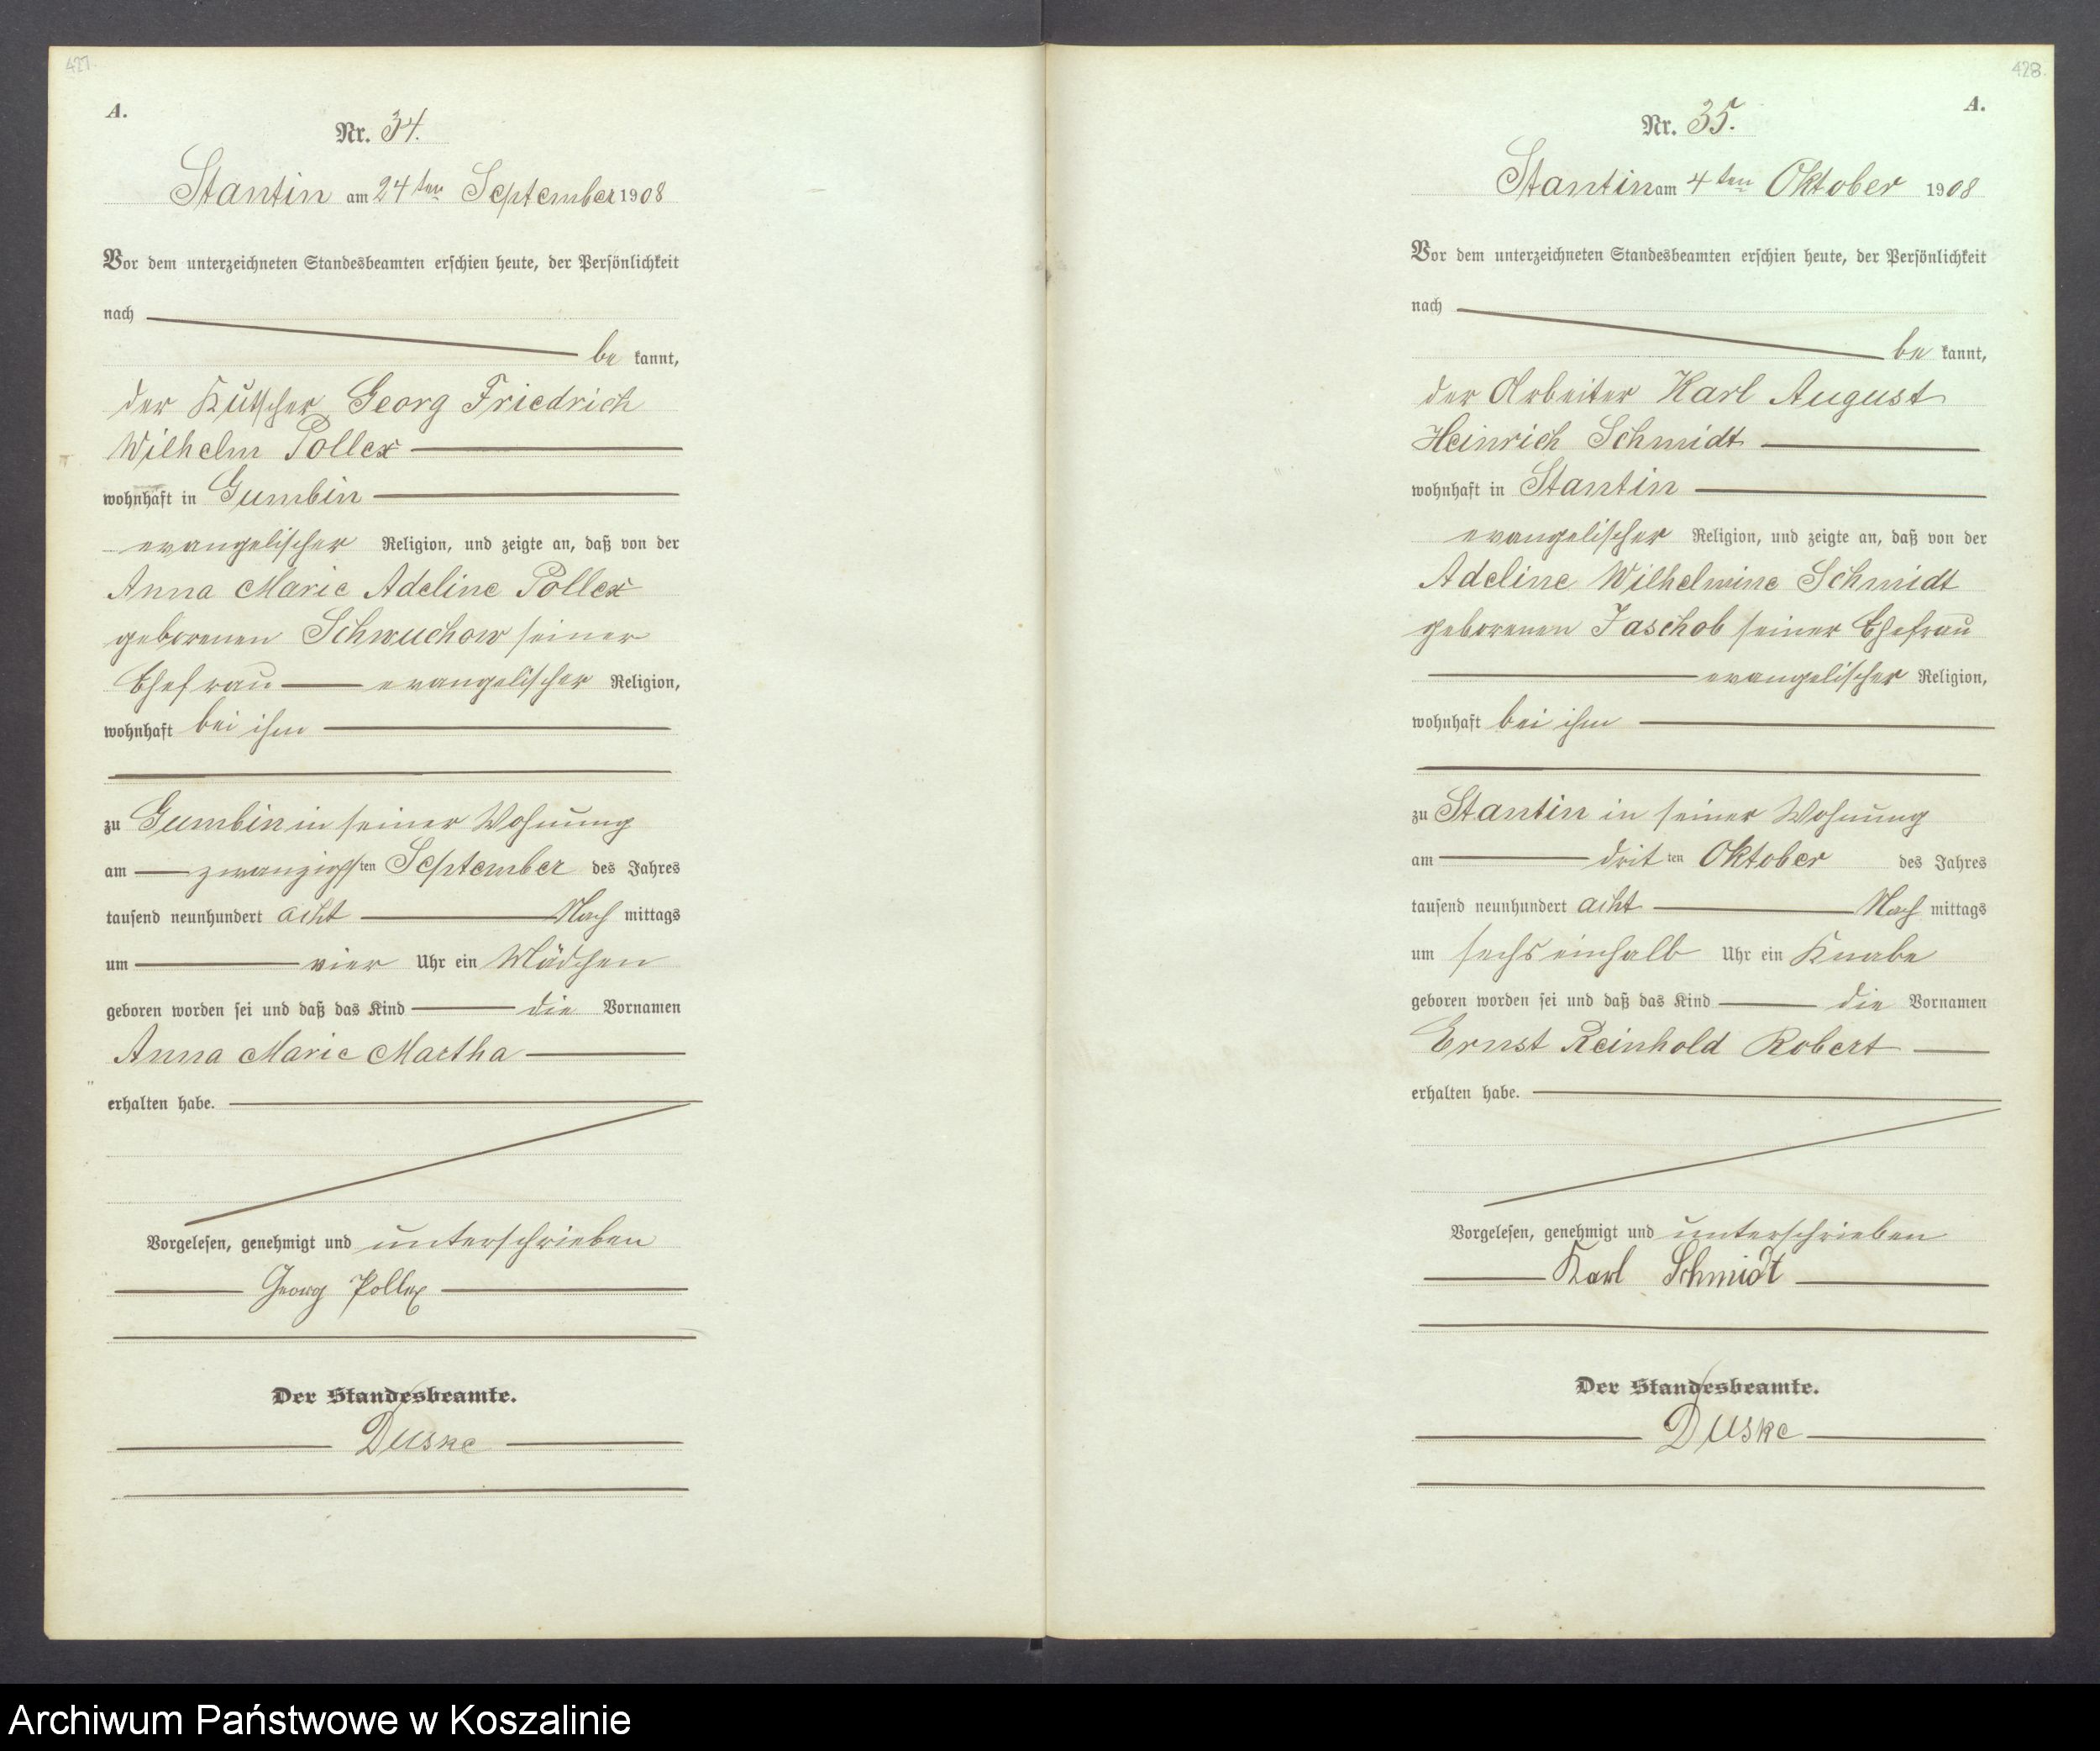 427.
A.
Nr. 34.
Stantin am 24ten September 1908
Vor dem unterzeichneten Standesbeamten erschien heute, der Persönlichkeit
nach
be kannt,
der Kutscher Georg Friedrich
Wilhelm Pollex
wohnhaft in Gumbin
evangelischer Religion, und zeigte an, daß von der
Anna Marie Adeline Pollex
geborenen Schwuchow seiner
Ehefrau evangelischer Religion,
wohnhaft bei ihm
zu Gumbin in seiner Wohnung
am zwanzigsten September des Jahres
tausend neunhundert acht Nach mittags
um vier Uhr ein Mädchen
geboren worden sei und daß das Kind die Vornamen
Anna Marie Martha
erhalten habe.
Vorgelesen, genehmigt und unterschrieben
Georg Pollex
Der Standesbeamte.
Duske
428.
A.
Nr. 35.
Stantin am 4ten Oktober 1908
Vor dem unterzeichneten Standesbeamten erschien heute, der Persönlichkeit
nach
be kannt,
der Arbeiter Karl August
Heinrich Schmidt
wohnhaft in Stantin
evangelischer Religion, und zeigte an, daß von der
Adeline Wilhelmine Schmidt
geborenen Jaschob seiner Ehefrau
evangelischer Religion,
wohnhaft bei ihm
zu Stantin in seiner Wohnung
am dritten Oktober des Jahres
tausend neunhundert acht Nach mittags
um sechs einhalb Uhr ein Knabe
geboren worden sei und daß das Kind die Vornamen
Ernst Reinhold Robert
erhalten habe.
Vorgelesen, genehmigt und unterschrieben
Karl Schmidt
Der Standesbeamte.
Duske
Archiwum Państwowe w Koszalinie